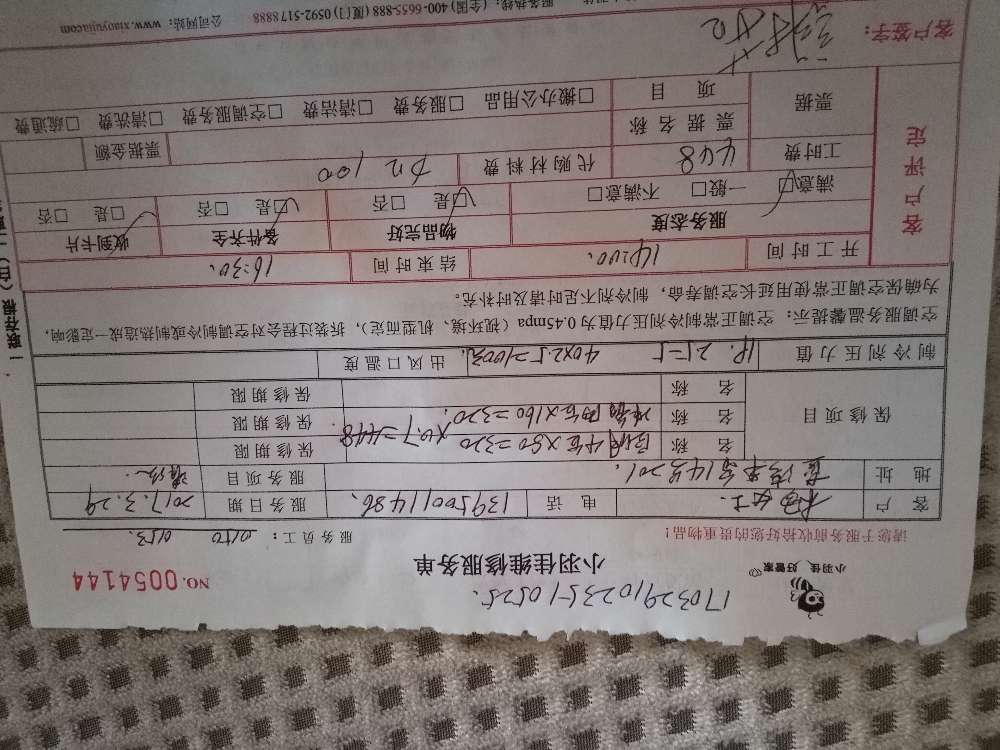 170329102351 0525.
小羽佳 好管家
小羽佳维修服务单
NO. 0054144
请您于服务前收拾好您的贵重物品！
服务员工： 0150 0153.
客 户 女士. 电 话 13950011486. 服务日期 2017.3.29
地 址 14号201. 服务项目
保修项目 名 称 ×80=320 保修期限
名 称 两台×160=320. ×0.7=448. 保修期限
名 称 保修期限
制冷剂压力值 40×2.5=100元. 出风口温度
空调服务温馨提示：空调正常制冷剂压力值为0.45mpa（视环境、机型而定），拆装过程会对空调制冷或制热造成一定影响，
为确保空调正常使用延长空调寿命，制冷剂不足时请及时补充。
开工时间 14:00. 结束时间 16:30.
客户评定 服务态度 物品完好 备件齐全 收到卡片
满意□ 一般□ 不满意□ □是 □否 □是 □否 □是 □否
工时费 448 代购材料费 100
票据 票据名称 票据金额
项 目 □搬办公用品 □服务费 □清洁费 □空调服务费 □清洗费 □疏通费
客户签字：
服务热线：(全国) 400-6655-888 (厦门) 0592-5178888 公司网站：www.xiaoyujia.com
一联存根（白）二联